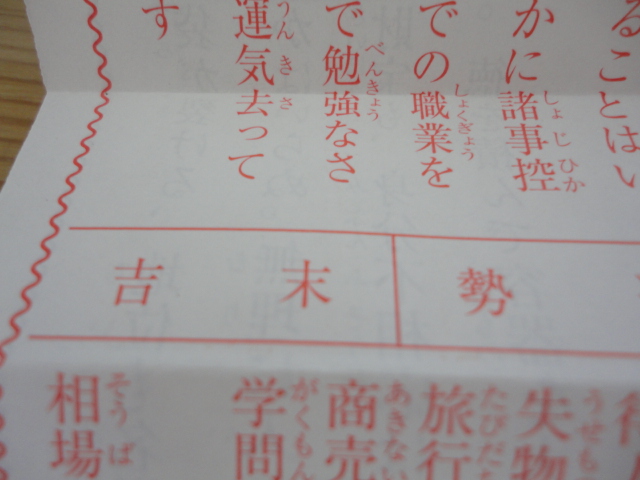 ることはい
かに諸事控
での職業を
で勉強なさ
運気去って
す
勢
末吉
失物
旅行
商売
学問
相場